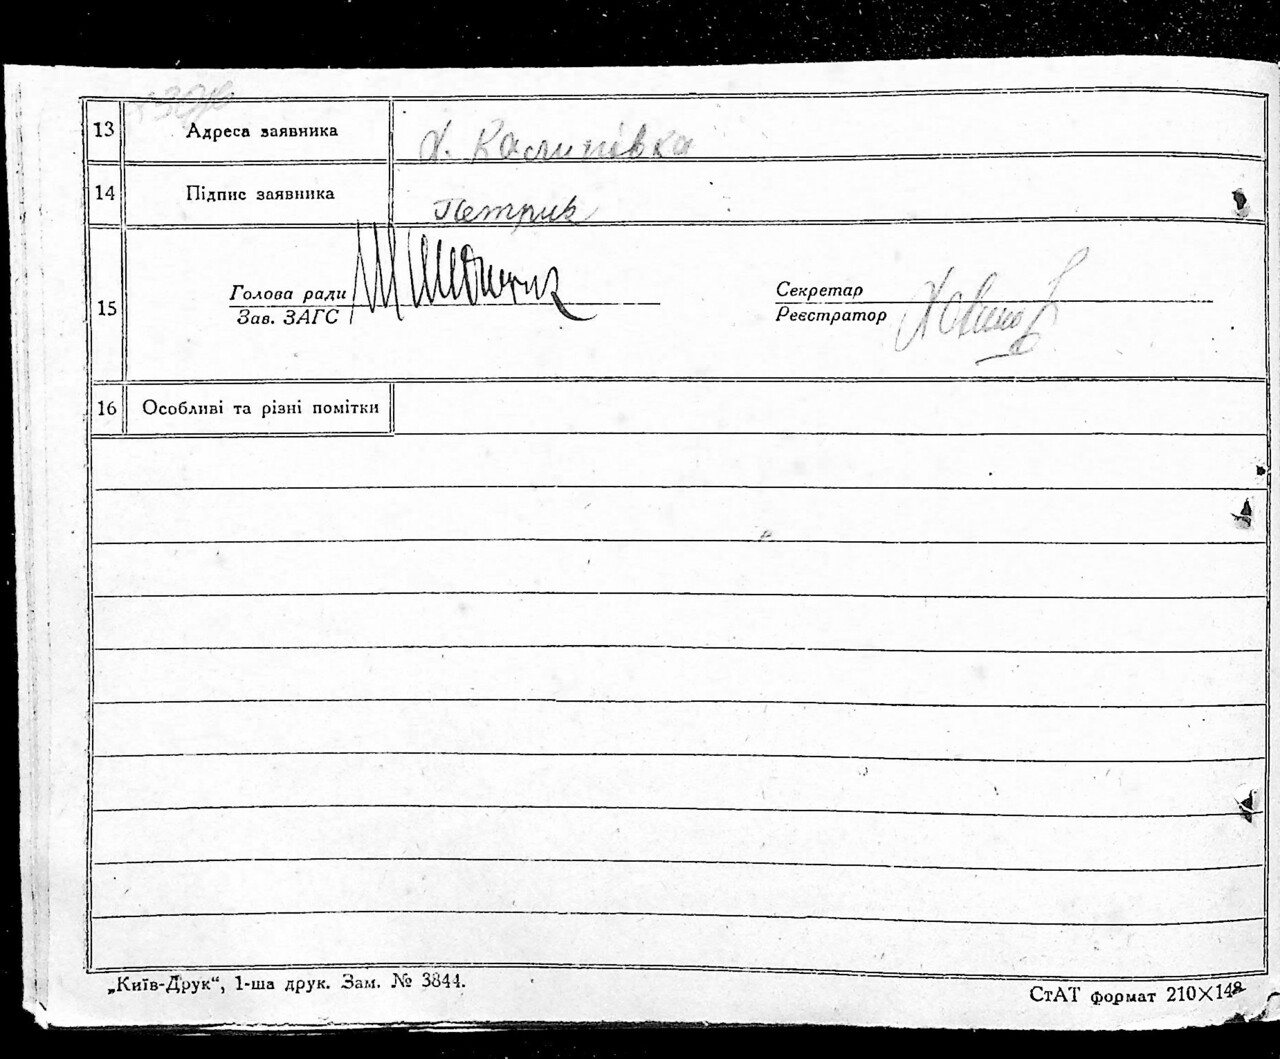 13 Адреса заявника х. Калинівка
14 Підпис заявника Петрик
15 Голова ради
Зав. ЗАГС
Секретар
Реєстратор
16 Особливі та різні помітки
„Київ-Друк“, 1-ша друк. Зам. № 3844.
СтАТ формат 210×148